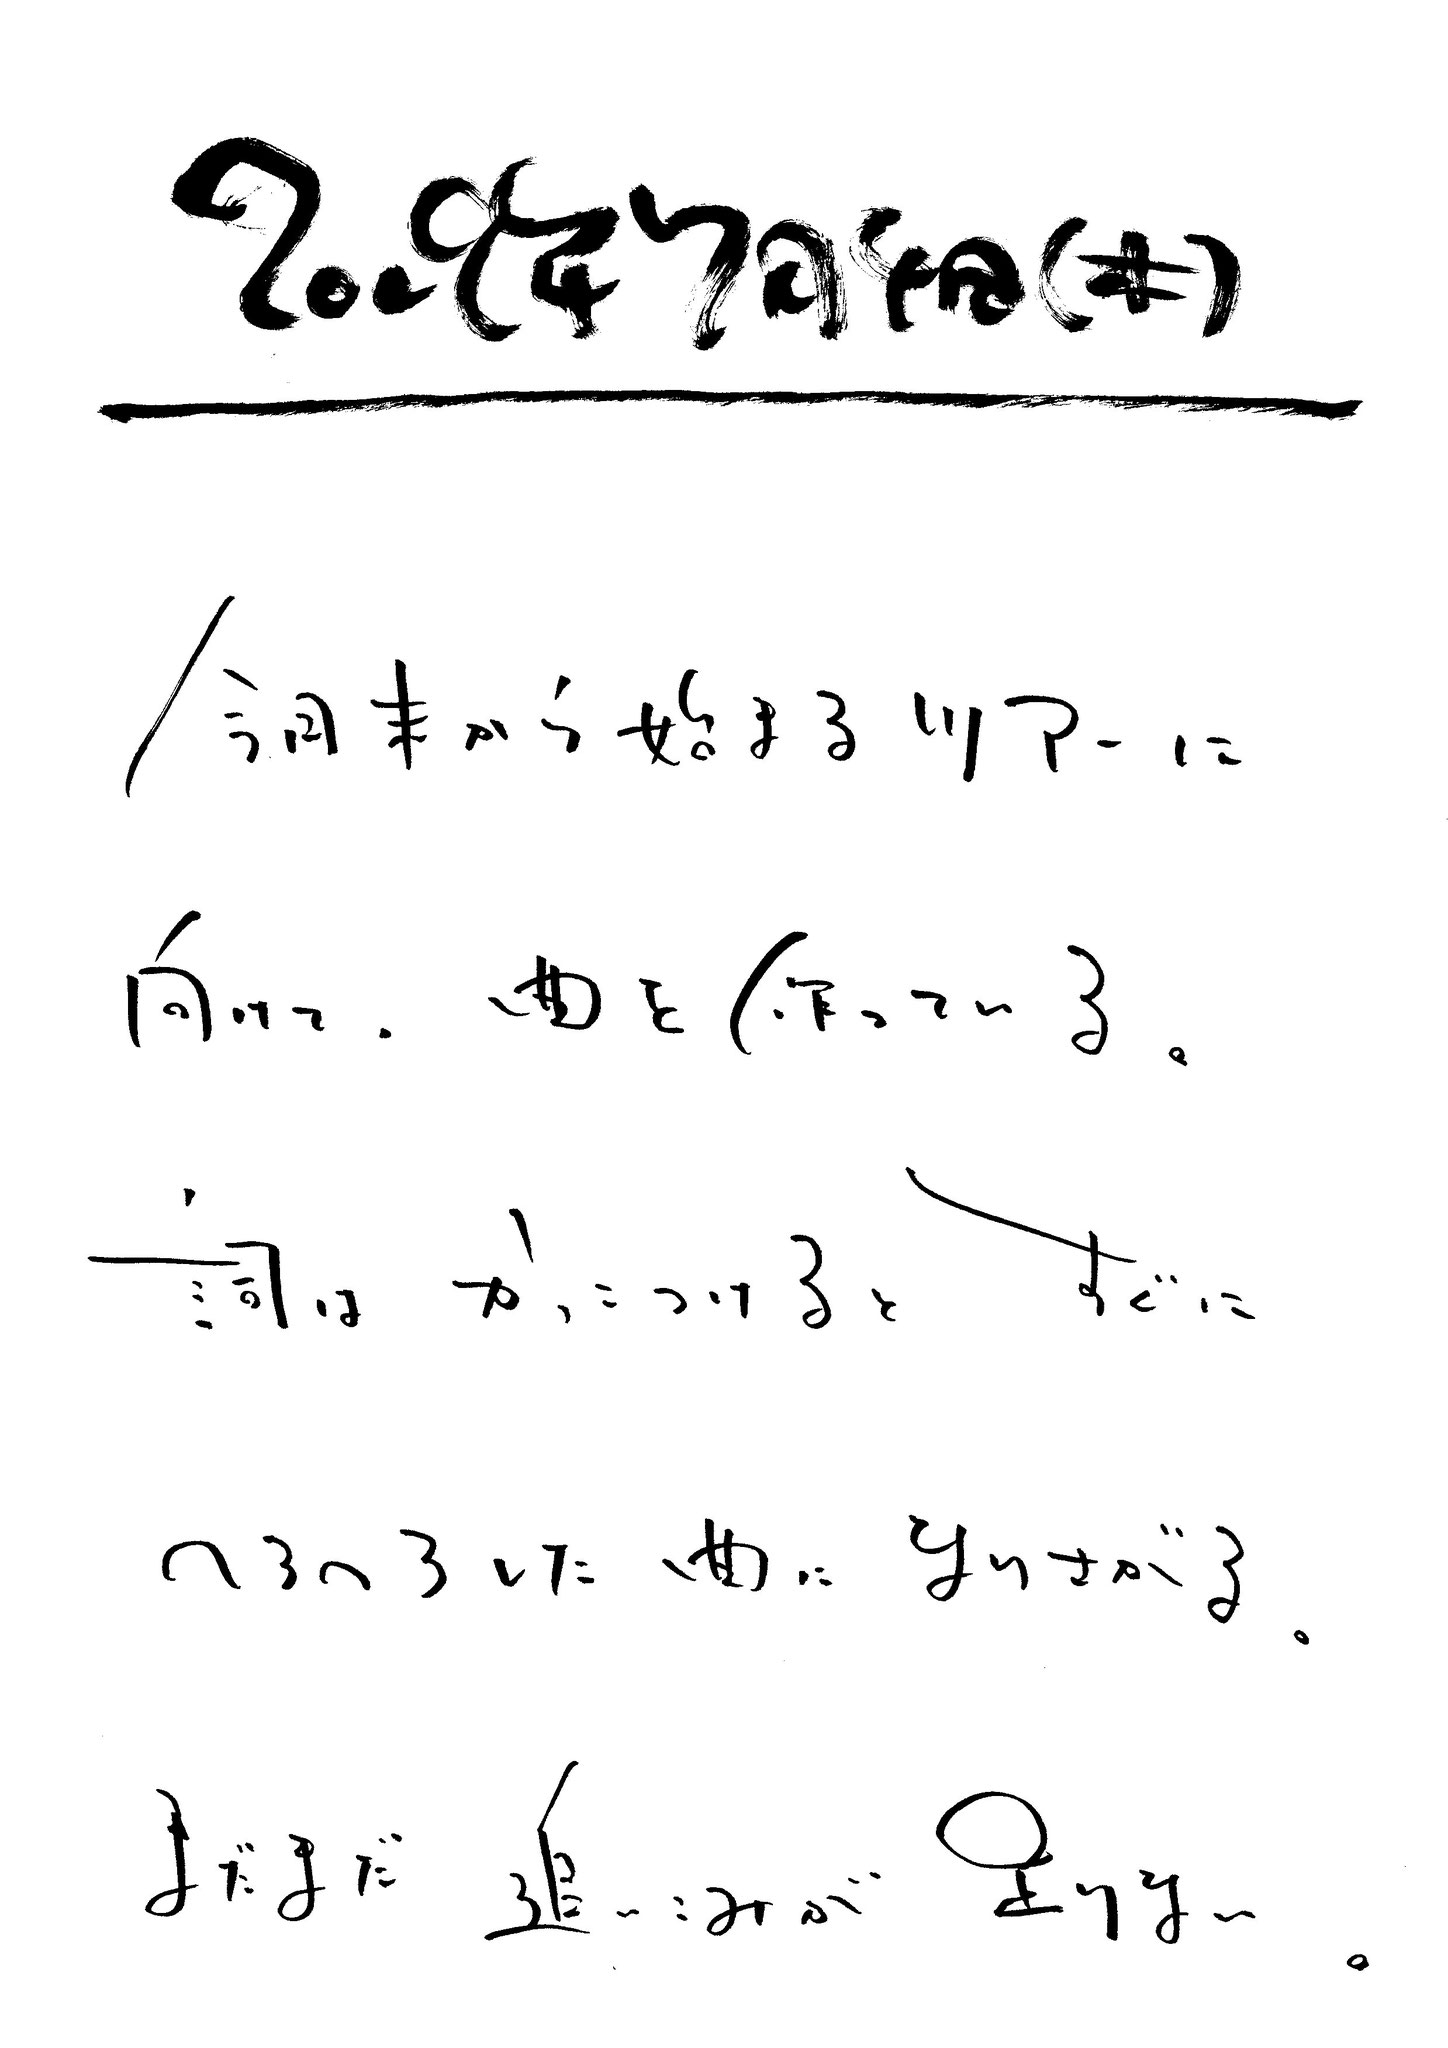 2009年7月4日(木)
今週末から始まるツアーに
向けて、曲を作っている。
詞はかっこつけるとすぐに
へろへろした曲に なりさがる。
まだまだ 追いこみが 足りない。